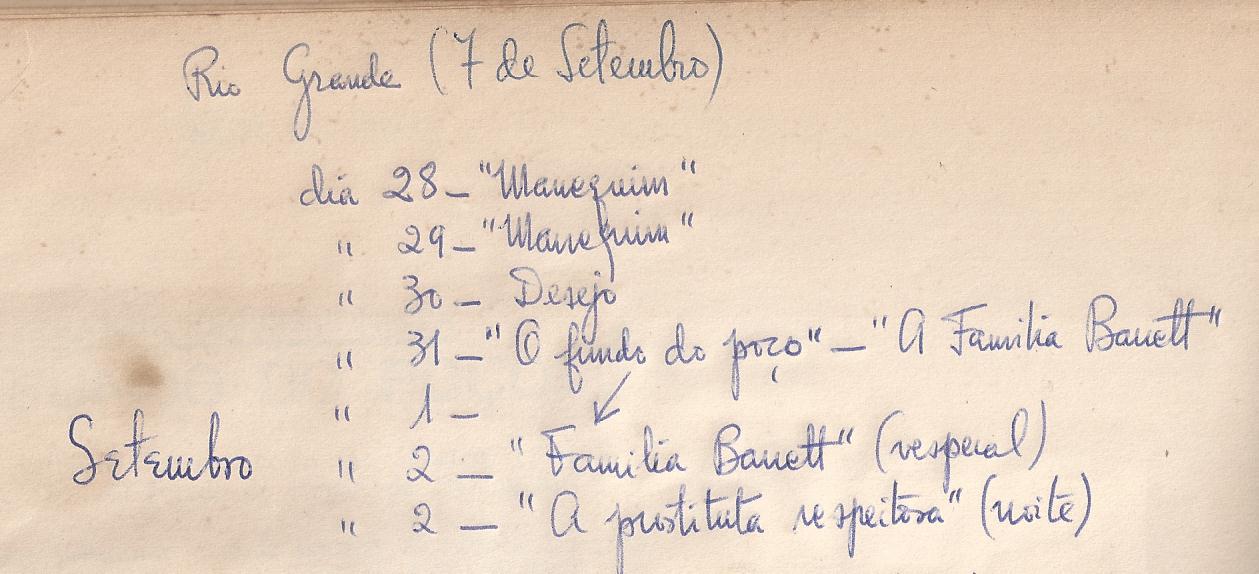 Rio Grande (7 de Setembro)
dia 28 - "Manequim"
" 29 - "Manequim"
" 30 - Desejo
" 31 - "O fundo do poço" - "A Familia Barrett"
" 1 -
Setembro " 2 - "Familia Barrett" (vesperal)
" 2 - "A prostituta respeitosa" (noite)